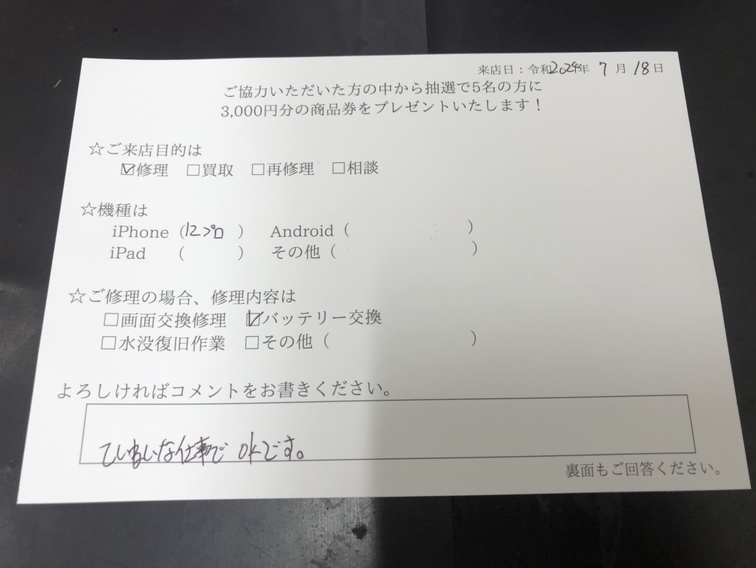 来店日：令和2024年 7月18日
ご協力いただいた方の中から抽選で5名の方に
3,000円分の商品券をプレゼントいたします！
☆ご来店目的は
☑修理 □買取 □再修理 □相談
☆機種は
iPhone（12プロ ） Android（ ）
iPad （ ） その他（ ）
☆ご修理の場合、修理内容は
□画面交換修理 ☑バッテリー交換
□水没復旧作業 □その他（ ）
よろしければコメントをお書きください。
ていねいな仕事で OKです。
裏面もご回答ください。